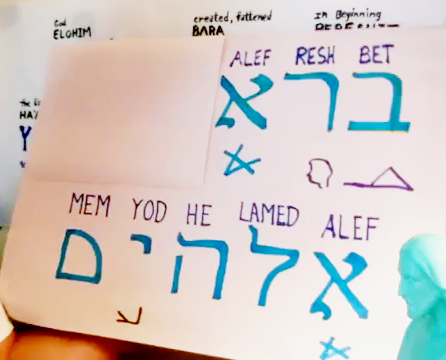 God created, fattened In Beginning
ELOHIM BARA
ALEF RESH BET
ברא
MEM YOD HE LAMED ALEF
אלהים